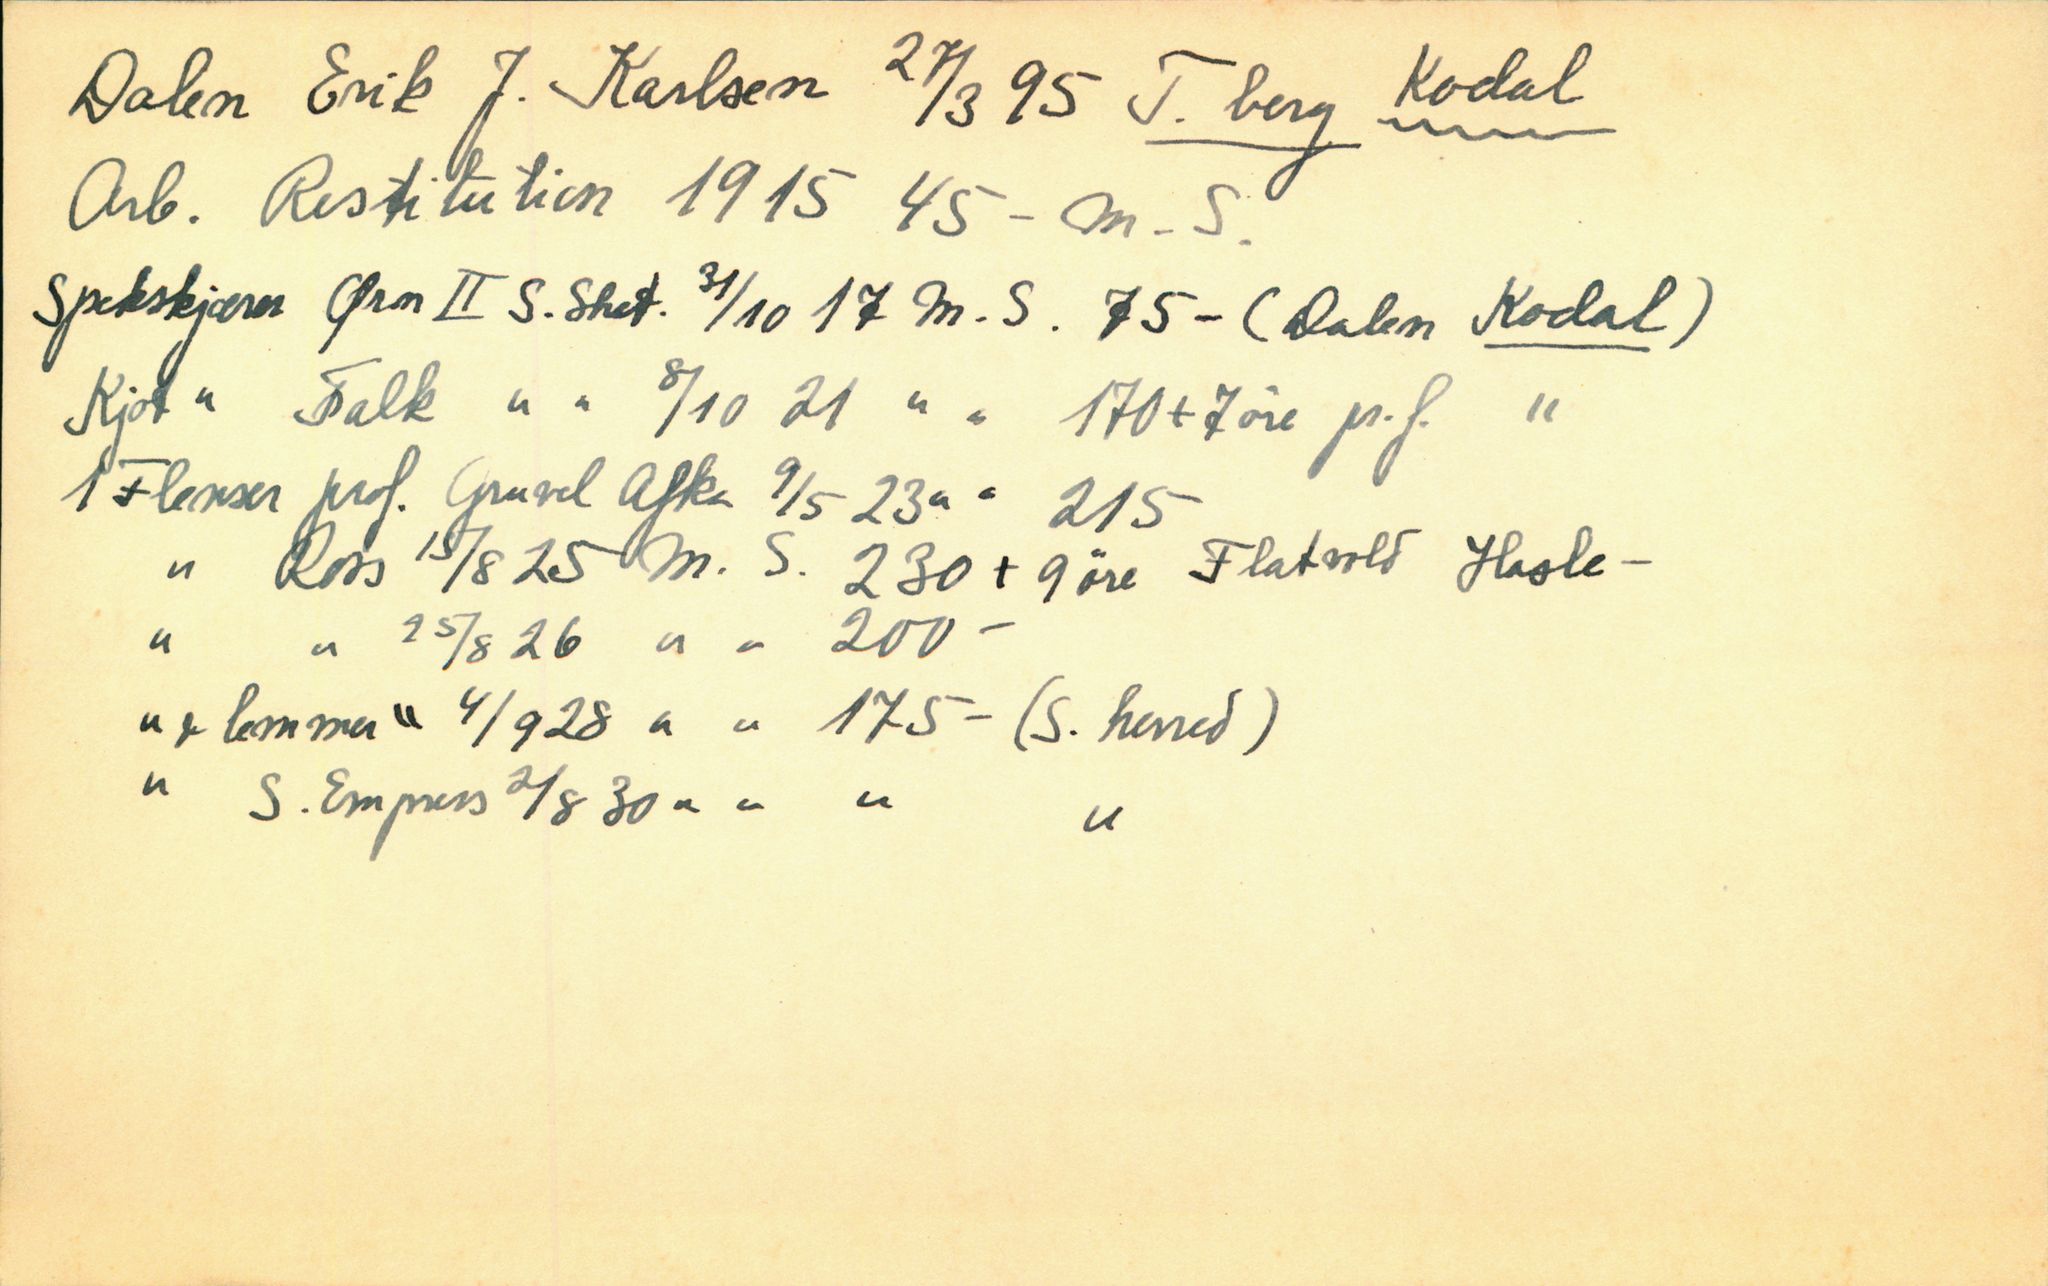 Dalen Erik J. Karlsen 27/3 95 T. berg Kodal
Arb. Restitution 1915 45 - M. S.
Spekskjærer Ørn II S. Shet. 31/10 17 M. S. 75 - (Dalen Kodal)
Kjøt " Falk " " 8/10 21 " " 170 + 7 öre pr. f. "
1 Flenser prof. Gruvel Afka 9/5 23 " " 215
" Ross 15/8 25 M. S. 230 + 9 öre Flatvold Hasle -
" " 25/8 26 " " 200 -
" & lemmer " 4/9 28 " " 175 - (S. herred)
" S. Empress 21/8 30 " " " "